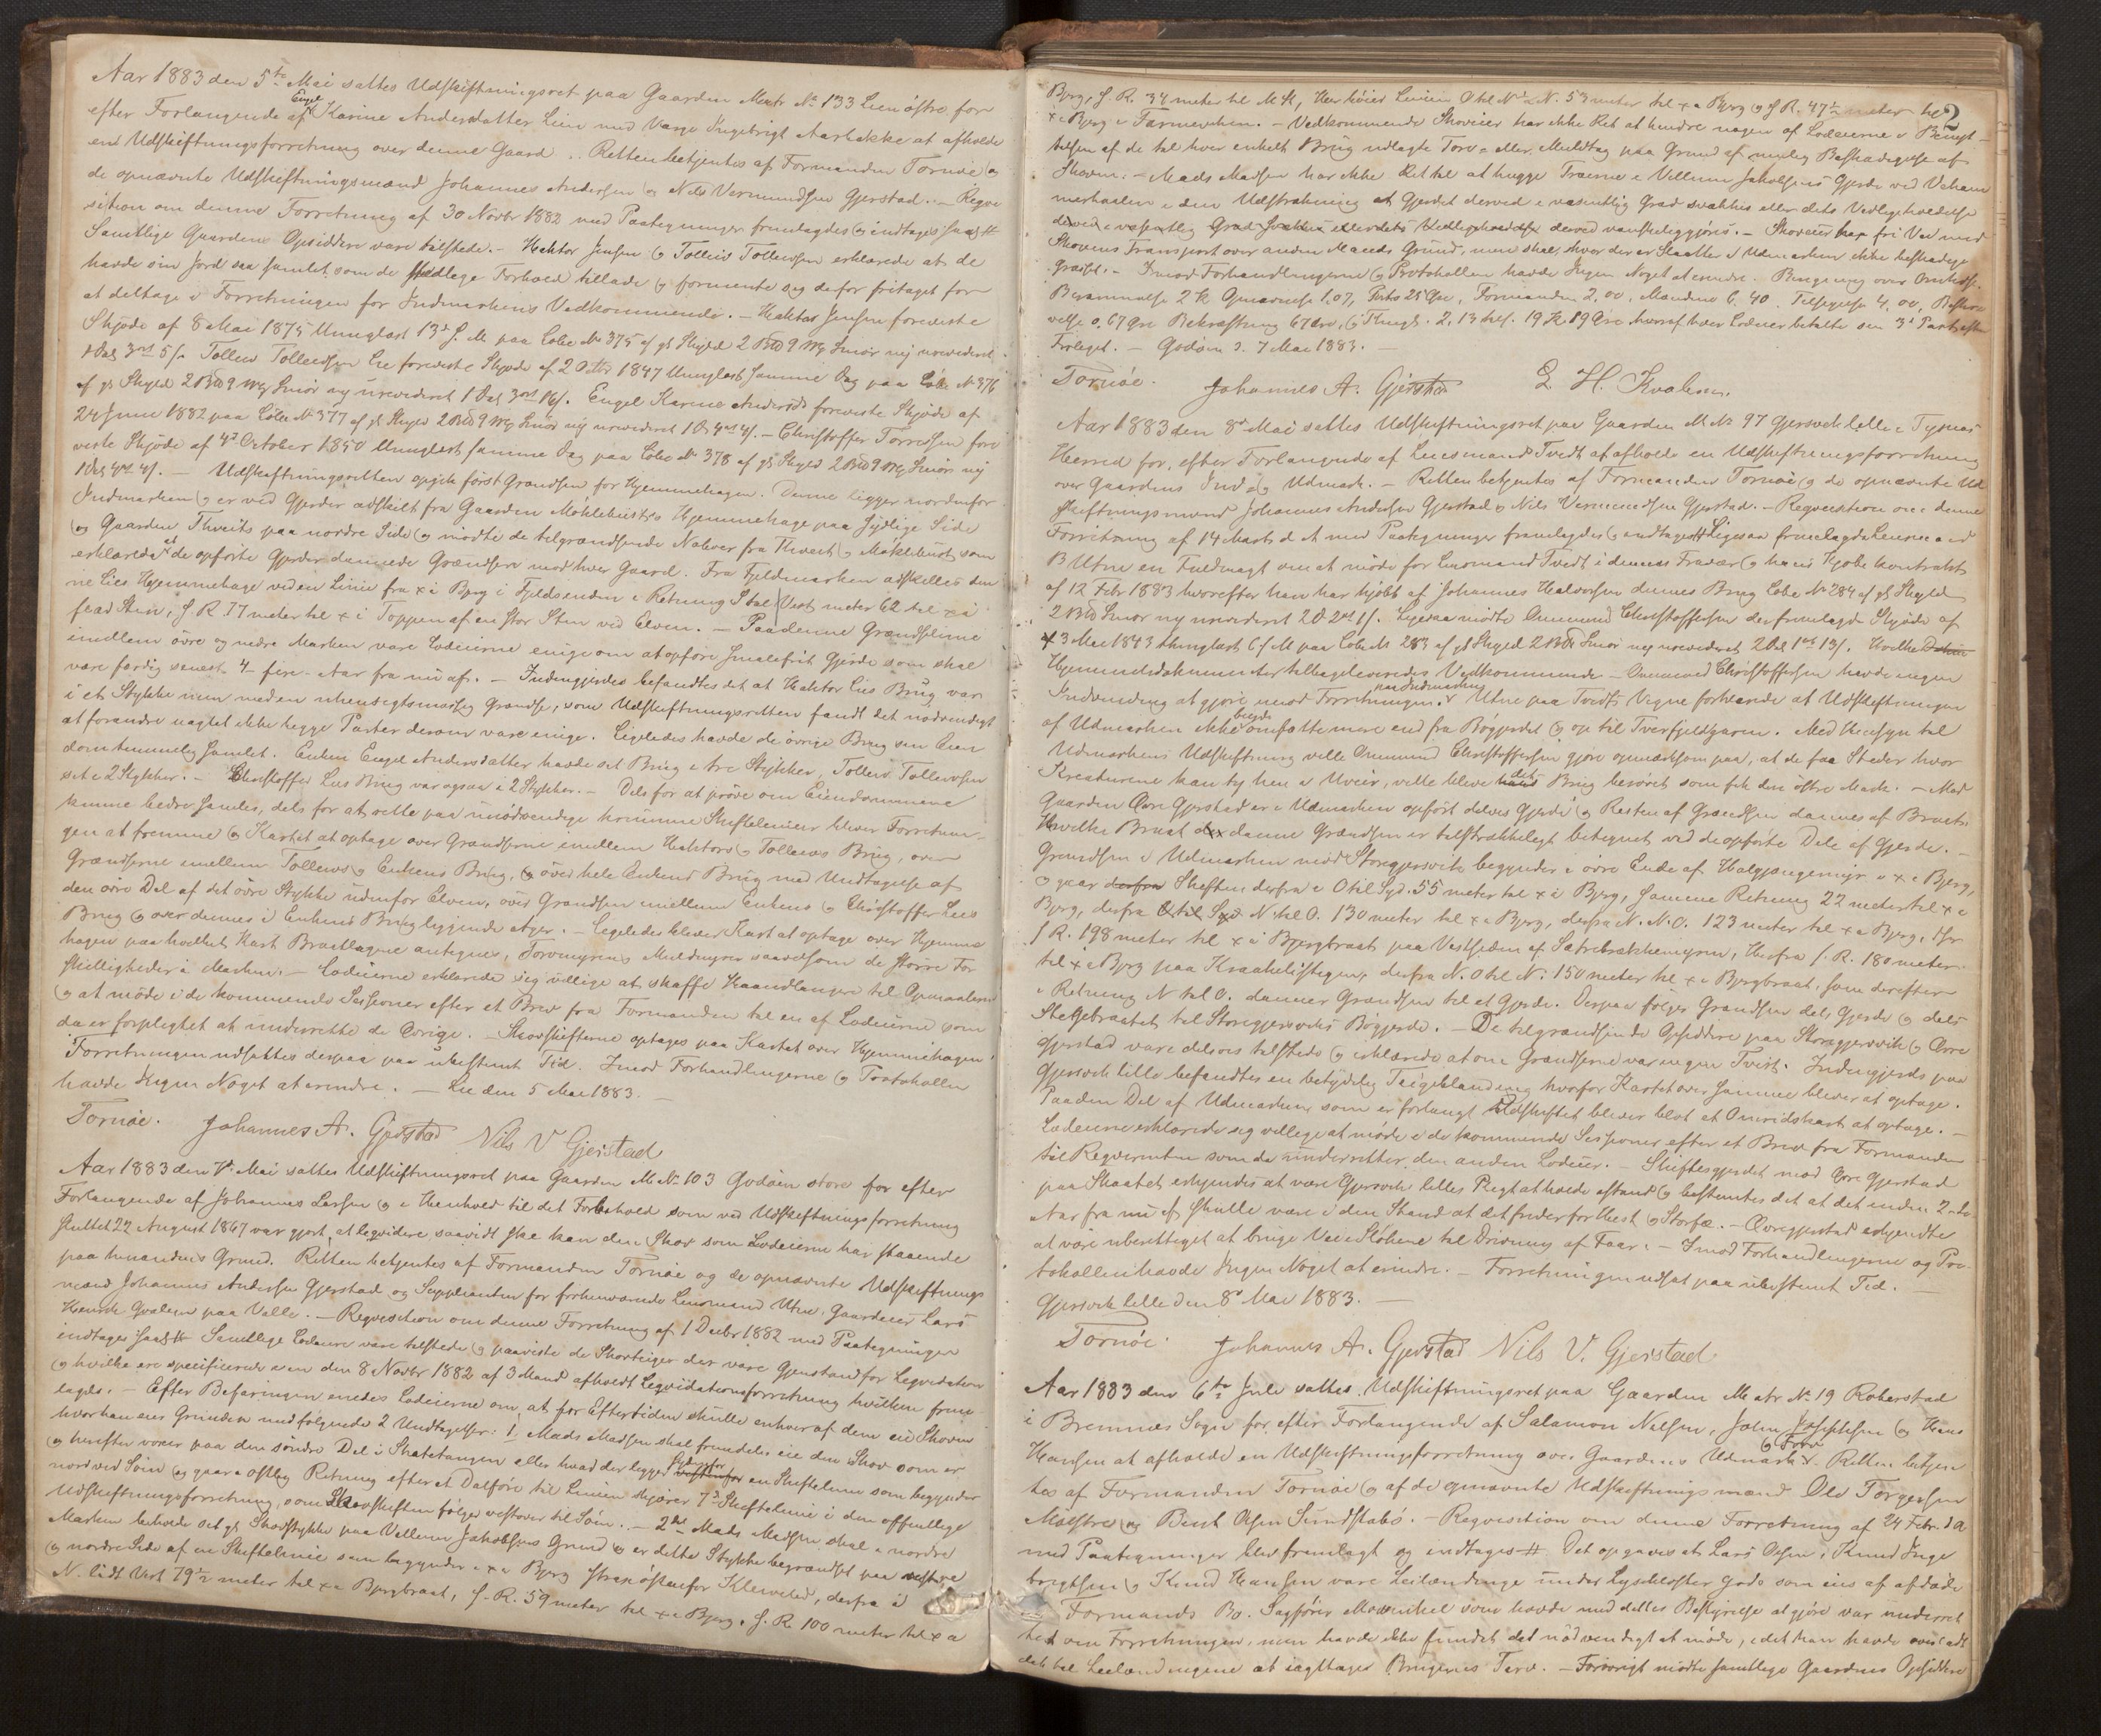 Aar 1883 den 5te Mai sattes Udskiftningsret paa Gaarden Matr No 133 Lien östre for
efter Forlangende af Engel Karine Andersdatter Lien med Værge Ingebrigt Aartække at afholde
en Udskiftningsforretning over denne Gaard. Retten betjentes af Formanden Tornöe og
de opnævnte Udskiftningsmænd Johannes Andersen og Nils Vermundsen Gjerstad. - Reqvi
sition om denne Forretning af 30 Novbr 1882 med Paategninger fremlagdes og indtages
Samtlige Gaardens Opsiddere vare tilstede. - Hektor Jensen og Tollein Tolleivsen erklærede at de
havde sin Jord saa samlet som de stedlige Forhold tillade og formente sig derfor fritaget for
at deltage i Forretningen for Indmarkens Vedkommende. - Hektor Jensen foreviste
Skjöde af 8 Mai 1875 thinglæst 13d s. M. paa Löbe No 375 af gl Skyld 2 Bpd 9 Mkr Smör ny urevideret
1 Dal 3 ort 5 s. Tolleiv Tolleivsen Lie foreviste Skjöde af 2 Octbr 1847 thinglæst samme Dag paa Löbe No 376
af gl Skyld 2 Bpd 9 Mkr Smör ny urevideret 1 Dal 3 ort 16 s. Engel Karine Andersd foreviste Skjöde af
24 Juni 1882 paa Löbe No 377 af gl Skyld 2 Bpd 9 Mkr Smör ny urevideret 1 D 4 ort 4 s. - Christoffer Torresen fore
viste Skjöde af 4d October 1850 thinglæst samme Dag paa Löbe No 378 af gl Skyld 2 Bpd 9 Mkr Smör ny
1 Dal 4 ort 4 s. - Udskiftningsretten opgik först Grændsen for Hjemmehagen. Denne ligger nordenfor
Indmarken og er ved Gjerder adskilt fra Gaarden Möklebusts Hjemmehage paa sydlige Side
og Gaarden Thveits paa nordre Side og mödte de tilgrændsende Naboer fra Thveit og Möklebust som
erklærede at de opförte Gjerder dannede Grændsen mod hver Gaard. Fra Fjeldmarken adskilles den
ne Lies Hjemmehage ved en Linie fra x i Bjerg i Fjeldsenden i Retning S til Vest meter 62 til x i
flad Sten, s. R. 77 meter til x i Toppen af en stor Sten ved Elven. - Paa denne Grændselinie
imellem övre og nedre Marken vare Lodeierne enige om at opföre smalefrit Gjerde som skal
være færdig senest 4 fire Aar fra nu af. - Indengjerdes befandtes det at Hektor Lies Brug var
i et Stykke men med en uhensigtsmæssig Grændse, som Udskiftningsretten fandt det nödvendigt
at forandre uagtet ikke begge Parter derom vare enige. Ligeledes havde de övrige Brug sin Eien
dom temmelig samlet. Enken Engel Andersdatter havde sit Brug i tre Stykker, Tolleiv Tolleivsen
sit i 2 Stykker. - Christoffer Lies Brug var ogsaa i 2 Stykker. - Dels for at pröve om Eiendommene
kunne bedre samles, dels for at rette paa unödvendige krumme Skiftelinier bliver Forretnin-
gen at fremme og Kartet at optage over Grændserne imellem Hektors og Tolleivs Brug, over
Grændserne imellem Tolleivs og Enkens Brug, og över hele Enkens Brug med Undtagelse af
den övre Del af det övre Stykke udenfor Elven, over Grændsen imellem Enkens og Christoffer Lies
Brug og over dennes i Enkens Brug liggende Ager. - Ligeledes bliver Kart at optage over Hjemme
hagen paa hvilket Kart Braatlagene antegnes, Torvmyrene Muldmyrer saavelsom de större For
skielligheder i Marken. - Lodeierne erklærede sig villige at skaffe Haandlangere til Opmaalingen
og at möde i de kommende Sessioner efter et Brev fra Formanden til en af Lodeierne som
da er forpligtet at underrette de Övrige. - Skovskifterne optages paa Kartet over Hjemmehagen.
Forretningen udsattes derpaa paa ubestemt Tid. Imod Forhandlingerne og Protokollen
havde Ingen Noget at erindre. - Lie den 5 Mai 1883. -
Tornöe. Johannes A. Gjerstad Nils V Gjerstad
Aar 1883 den 7de Mai sattes Udskiftningsret paa Gaarden M No 103 Godöen store for efter
Forlangende af Johannes Larsen og i Henhold til det Forbehold som ved Udskiftningsforretning
sluttet 22 August 1867 var gjort, at liqvidere saavidt ske kan den Skov som Lodeierne har staaende
paa hinandens Grund. Retten betjentes af Formanden Tornöe og de opnævnte Udskiftnings
mænd Johannes Andersen Gjerstad og Suppleanten for forhenværende Lensmand Utne, Gaardeier Lars
Henrik Qvalen paa Valle. - Reqvisition om denne Forretning af 1 Decbr 1882 med Paategninger
indtages Samtlige Lodeiere vare tilstede og paaviste de Skovteiger der vare Gjenstand for Liqvidation
og hvilke ere specificerede i en den 8 Novbr 1882 af 3 Mænd afholdt Liqvidationsforretning hvilken frem
lagdes. - Efter Befaringen enedes Lodeierne om, at for Eftertiden skulle enhver af dem eie Skoven
hvor han eier Grunden med fölgende 2 Undtagelser: 1, Mads Madsen skal fremdeles eie den Skov som er
og herefter voxer paa den söndre Del i Skatetangen eller hvad der ligger sydenfor en Skiftelinie som begynder
nord ved Söen og gaar i östlig Retning efter et Dalföre til Linien skjærer 7d Skiftelinie i den offentlige
Udskiftningsforretning, som Skovskiften fölger vestover til Söen. - 2det Mads Madsen skal i nordre
Marken beholde sit gl Skovstykke paa Vellum Jakobsens Grund og er dette Stykke begrændset paa vestre
og nordre Side af en Skiftelinie som begynder i x i Bjerg strax östenfor Kleiveled, derfra i
N. lidt Vest 79½ meter til x i Bjergbraat, s. R. 59 meter til x i Bjerg. s. R. 100 meter til x i
2
Bjerg, s. R. 34 meter til M St, Her höier Linien O til N½N. 53 meter til x i Bjerg og s R. 47½ meter til
x i Bjerg i Farmerehein. - Vedkommende Skoveier har ikke Ret at hindre nogen af Lodeierne i Benyt-
telsen af de til hver enkelt Brug udlagte Torv- eller Muldtag paa Grund af mulig Beskadigelse af
Skoven. - Mads Madsen har ikke Ret til at hugge Træerne i Vellum Jakobsens Gjerde ved
i den Udstrækning at Gjerdet derved i væsentlig Grad svækkes eller dets Vedligeholdelse
derved i væsentlig Grad svækkes eller dets Vedligeholdelse derved vanskeliggjöres. - Skoveier har fri Vei med
Skovens Transport over anden Mands Grund, men skal, hvor der er Slaatter i Udmarken ikke beskadige
Græsset. - Imod Forhandlingerne og Protokollen havde Ingen Noget at erindre. Beregning over Omkost.
Berammelse 2 Kr Opnævnelse 1,07, Porto 25 Öre, Formanden 2,00, Mændene 6,40. Tilsigelse 4,00, Beskri-
velse 0,67 Öre Bekræftning 67 Öre, og Thingl. 2,13 tils. 19 Kr 19 Öre hvoraf hver Lodeier betalte sin 3d Part efter
Forliget. - Godöen d. 7 Mai 1883. -
Tornöe. Johannes A. Gjerstad L H. Kvalen.
Aar 1883 den 8de Mai sattes Udskiftningsret paa Gaarden M No 97 Gjersvik lille i Tysnes
Herred for, efter Forlangende af Lensmand Tvedt at afholde en Udskiftningsforretning
over Gaardens Ind og Udmark. - Retten betjentes af Formanden Tornöe og de opnævnte Ud
skiftningsmænd Johannes Andersen Gjerstad og Nils Vermundsen Gjerstad. - Reqvisition om denne
Forretning af 14 Marts d A med Paategninger fremlagdes og indtages Ligesaa fremlagde Lensmand
B Utne en Fuldmagt om at möde for Lensmand Tvedt i dennes Fravær og hans Kjöbekontrakt
af 12 Febr 1883 hvorefter han har kjöbt af Johannes Halvorsen dennes Brug Löbe No 284 af gl Skyld
2 Bpd Smör ny urevideret 2 D 2 ort 1 s. Ligesaa mödte Ommund Christoffersen der fremlagde Skjöde af
3 Mai 1843 thinglæst 6 s M paa Löbe No 283 af gl Skyld 2 Bpd Smör ny urevideret 2 Dal 1 ort 13 s. Hvilke
Hjemmelsdokumenter tilbageleveredes Vedkommende - Ommund Christoffersen havde ingen
Indvending at gjöre imod Forretningen. paa Indmarken Utne paa Tvedts Vegne forlangte at Udskiftningen
af Udmarken ikke burde omfatte mere end fra Bögjerdet og op til Tverfjeldgaren. Med Hensyn til
Udmarkens Udskiftning ville Ommund Christoffersen gjöre opmærksom paa, at de faa Steder hvor
Kreaturene kan ty hen i Uveir, ville blive det Brug beröret som fik den östre Mark. - Mod
Gaarden Övre Gjerstad er i Udmarken opfört delvis Gjerde og Resten af Grændsen dannes af Braat.
Hvilke Braat der danne Grændsen er tilstrækkeligt betegnet ved de opförte Dele af Gjerde. -
Grændsen i Udmarken mod Storegjersvik begynder i övre Ende af Halgjængemyr i x i Bjerg,
og gaar Skiften derfra i O til Syd. 55 meter til x i Bjerg, samme Retning 22 meter til x i
Bjerg, derfra N. til O. 130 meter til x i Bjerg, derfra N. N. O. 123 meter til x i Bjerg,
s R. 198 meter til x i Bjergbraat paa Vestsiden af Herfra s. R. 180 meter
til x i Bjerg paa Kraakelistegen, derfra N. O til N. 150 meter til x i Bjergbraat, som derefter
i Retning N til O. danner Grændsen til et Gjerde. Derpaa fölger Grændsen dels Gjerde og dels
til Storegjersviks Bögjerde. - De tilgrændsende Opsiddere paa Storegjersvik og Övre
Gjerstad vare delvis tilstede og erklærede at om Grændserne var ingen Tvist. Indengjerds paa
Gjersvik lille befandtes en betydelig Teigeblanding hvorfor Kartet over samme bliver at optage.
Paa den Del af Udmarken som er forlangt Udskiftet bliver blot et Omridskart at optage. -
Lodeierne erklærede sig villige at möde i de kommende Sessioner efter et Brev fra Formanden
til Reqvirenten som da underretter den anden Lodeier. - Skiftesgjerdet mod Övre Gjerstad
paa Skaatet erkjendes at være Gjersvik lilles Pligt at holde istand og bestemtes det at det inden 2 to
Aar fra nu af skulle være i den Stand at det freder for Hest og Storfæ. - Övregjerstad erkjendte
at være uberettiget at bruge Veie til Drivning af Faar. - Imod Forhandlingerne og Pro-
tokollen havde Ingen Noget at erindre. - Forretningen udsat paa ubestemt Tid. -
Gjersvik lille den 8de Mai 1883. -
Tornöe. Johannes A. Gjerstad Nils V. Gjerstad
Aar 1883 den 6te Juli sattes Udskiftningsret paa Gaarden Matr No 19 Roberstad
i Bremnes Sogn for, efter Forlangende af Salamon Nilsen, John Josephsen og Hans
Hansen at afholde en Udskiftningsforretning over Gaardens Udmark og Torv. Retten betjen
tes af Formanden Tornöe og af de opnævnte Udskiftningsmænd Ole Torgersen
Mælstre og Bengt Olsen Sundstabö. - Reqvisition om denne Forretning af 24 Febr. d A
med Paategninger blev fremlagt og indtages Det opgaves at Lars Olsen, Knud Inge
brigtsen og Knud Hansen vare Leilændinge under Lysekloster Gods som eies af afdöde
Formanns Bo. Sagförer Mowinckel som havde med dettes Bestyrelse at gjöre var underret
tet om Forretningen, men havde ikke fundet det nödvendigt at möde, idet han havde overladt
det til Leilændingene at iagttage Brugenes Tarv. - Forövrigt mödte samtlige Gaardens Opsiddere